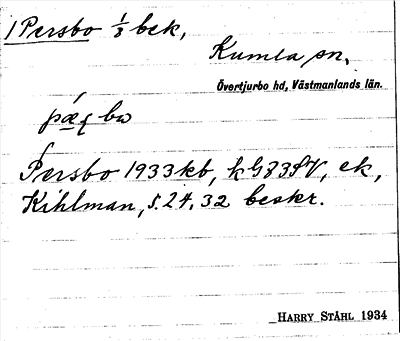 1 Persbo 1/3 bek,
Kumla sn,
Övertjurbo hd, Västmanlands län.
Persbo 1933 kb, ek,
Kihlman, s. 24, 32 beskr.
HARRY STÅHL 1934